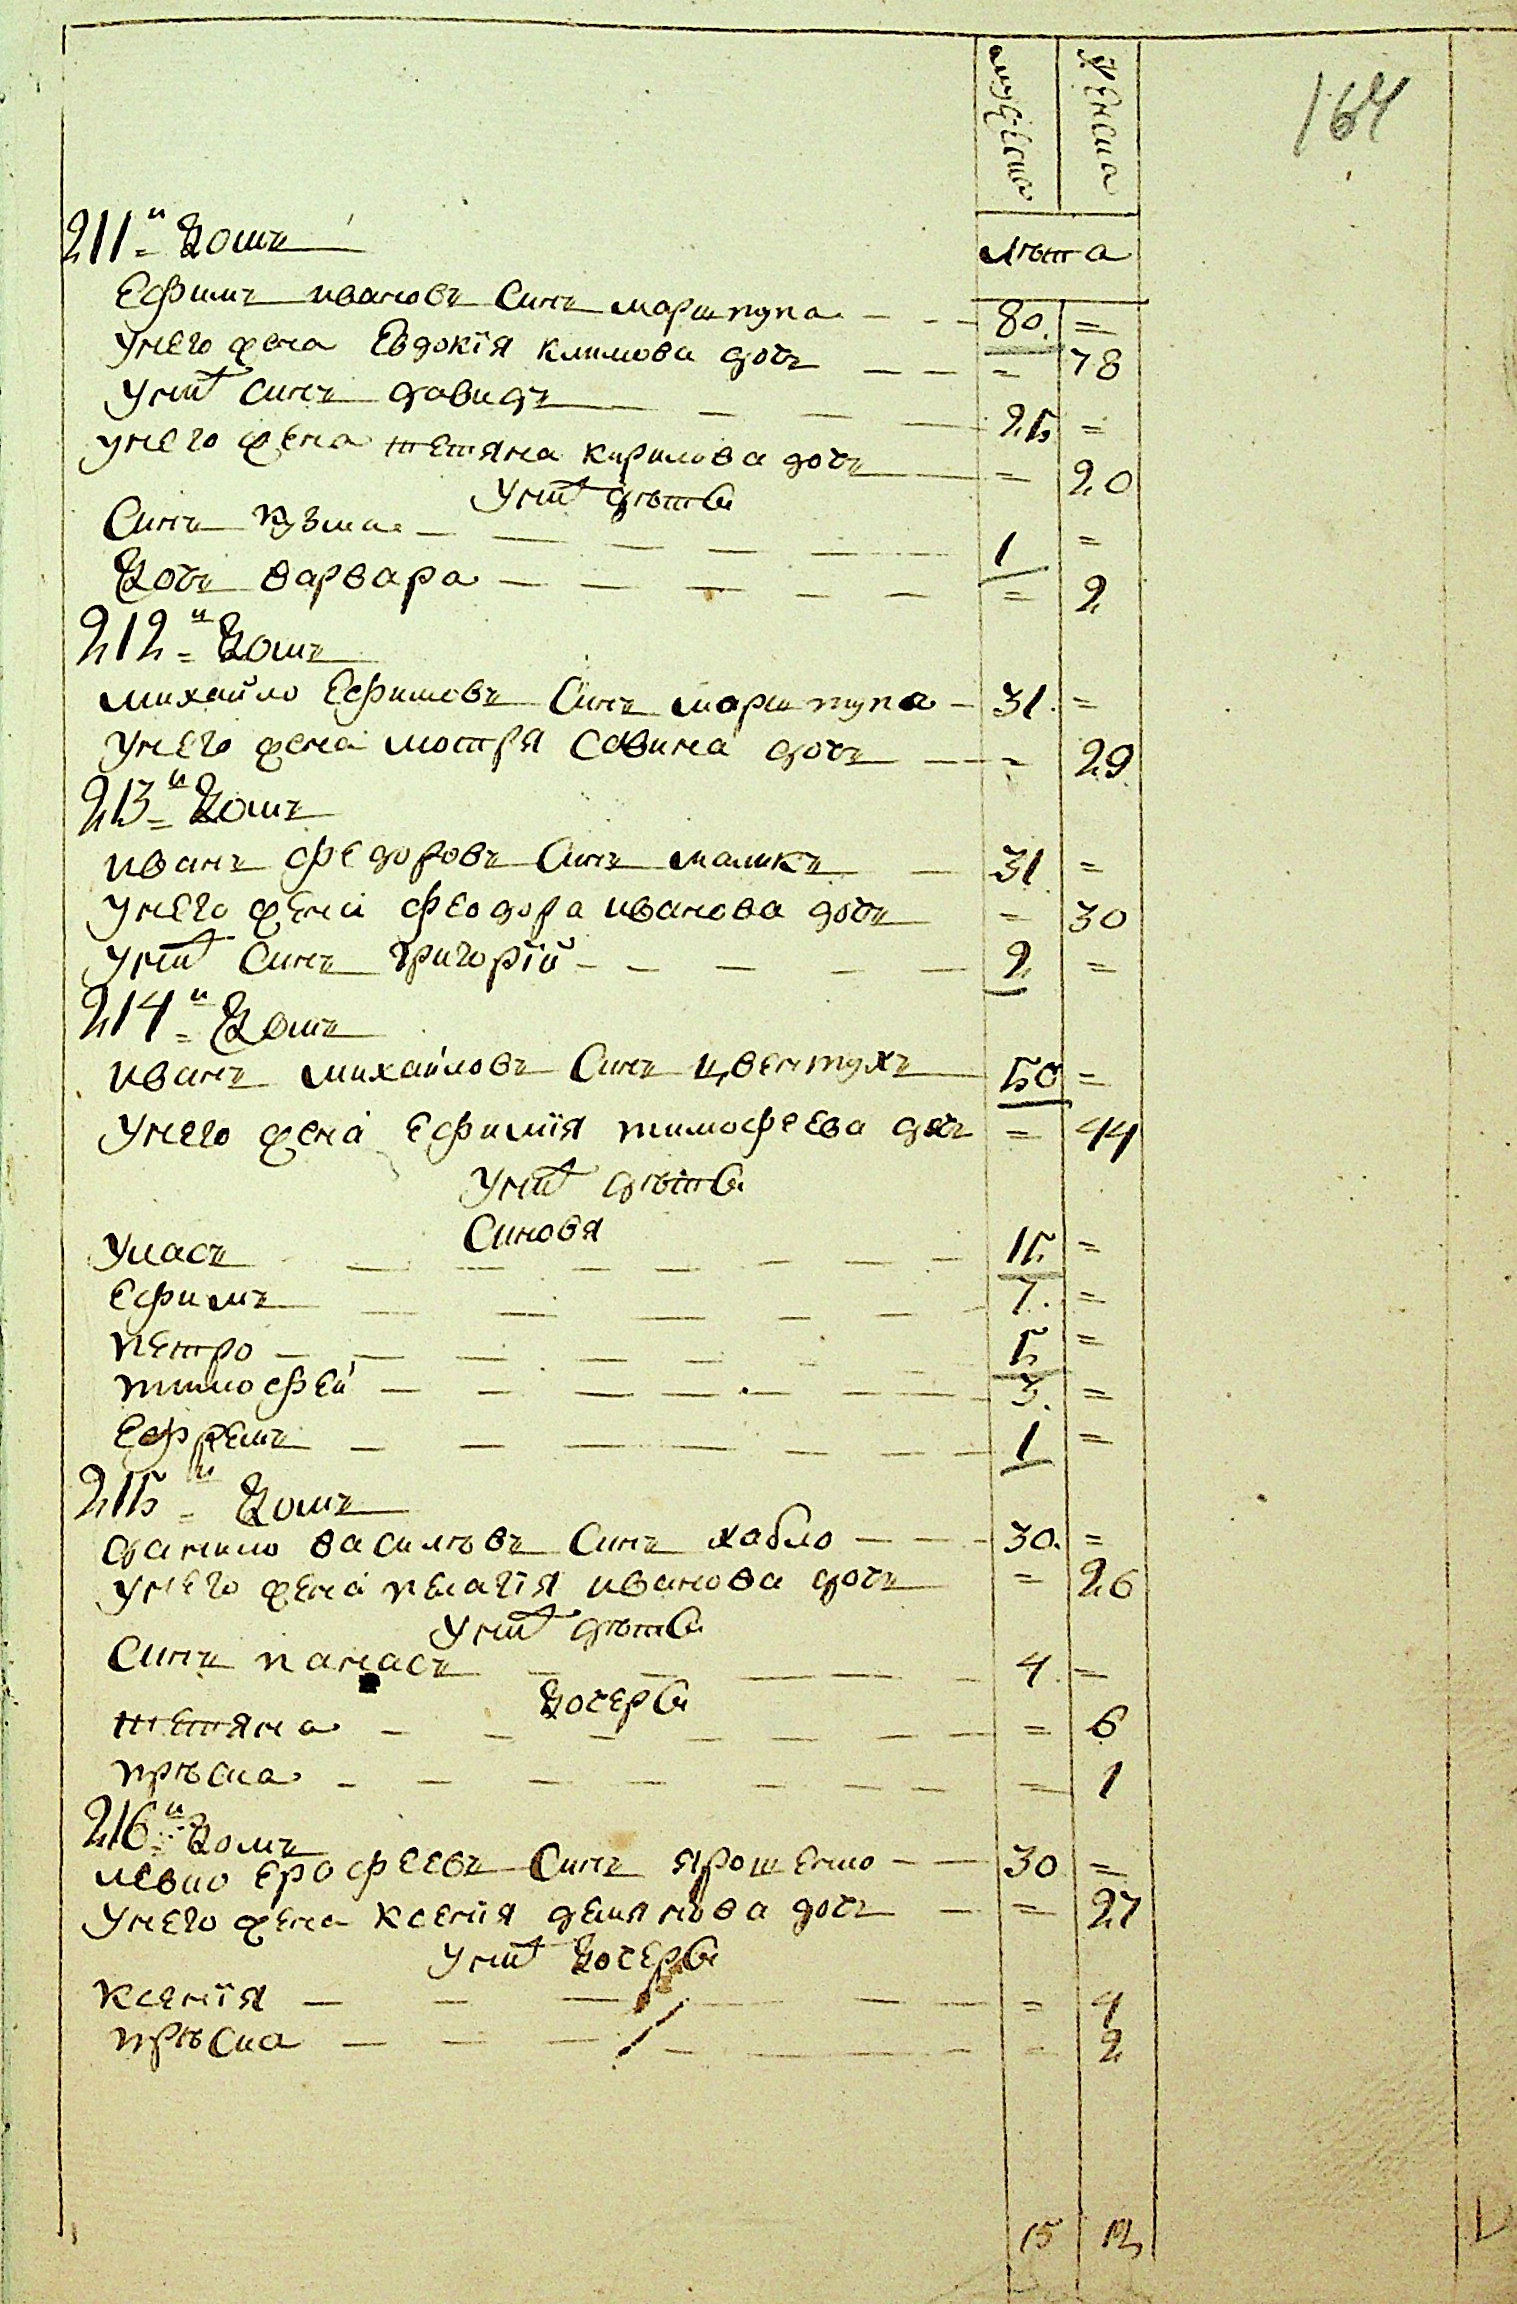 мужеска женска
164
лѣта
211й домъ
Ефимъ ивановъ Синъ мартпупа 80. =
унего жена Евдокїя климова дочъ = 78
унихъ синъ давидъ 25 =
унего жена тетяна кирилова дочъ = 20
унихъ дѣти
Синъ кузма 1 =
Дочъ варвара = 2
212й домъ
михайло Ефимовъ Синъ 31. =
унего жена мотря Савина дочъ = 29
213й домъ
иванъ федоровъ Синъ маликъ 31 =
унего жена феодора иванова дочъ = 30
унихъ Синъ григорїй 2 =
214й домъ
иванъ михайловъ Синъ цвентухъ 50 =
унего жена Ефимїя тимофеева дочъ = 44
унихъ дѣти
Синовя
уласъ 15 =
Ефимъ 7. =
петро 5 =
тимофей 3. =
Ефремъ 1 =
215й домъ
данило василѣвъ Синъ хабло 30. =
унего жена пелагїя иванова дочъ = 26
унихъ дѣти
Синъ панасъ 4 =
Дочери
тетяна = 6
прѣска = 1
216й домъ
левко Ерофеевъ Синъ ярошенко 30 =
унего жена ксенїя демянова дочъ = 27
унихъ Дочери
ксенїя = 4
прѣска = 2
15 12